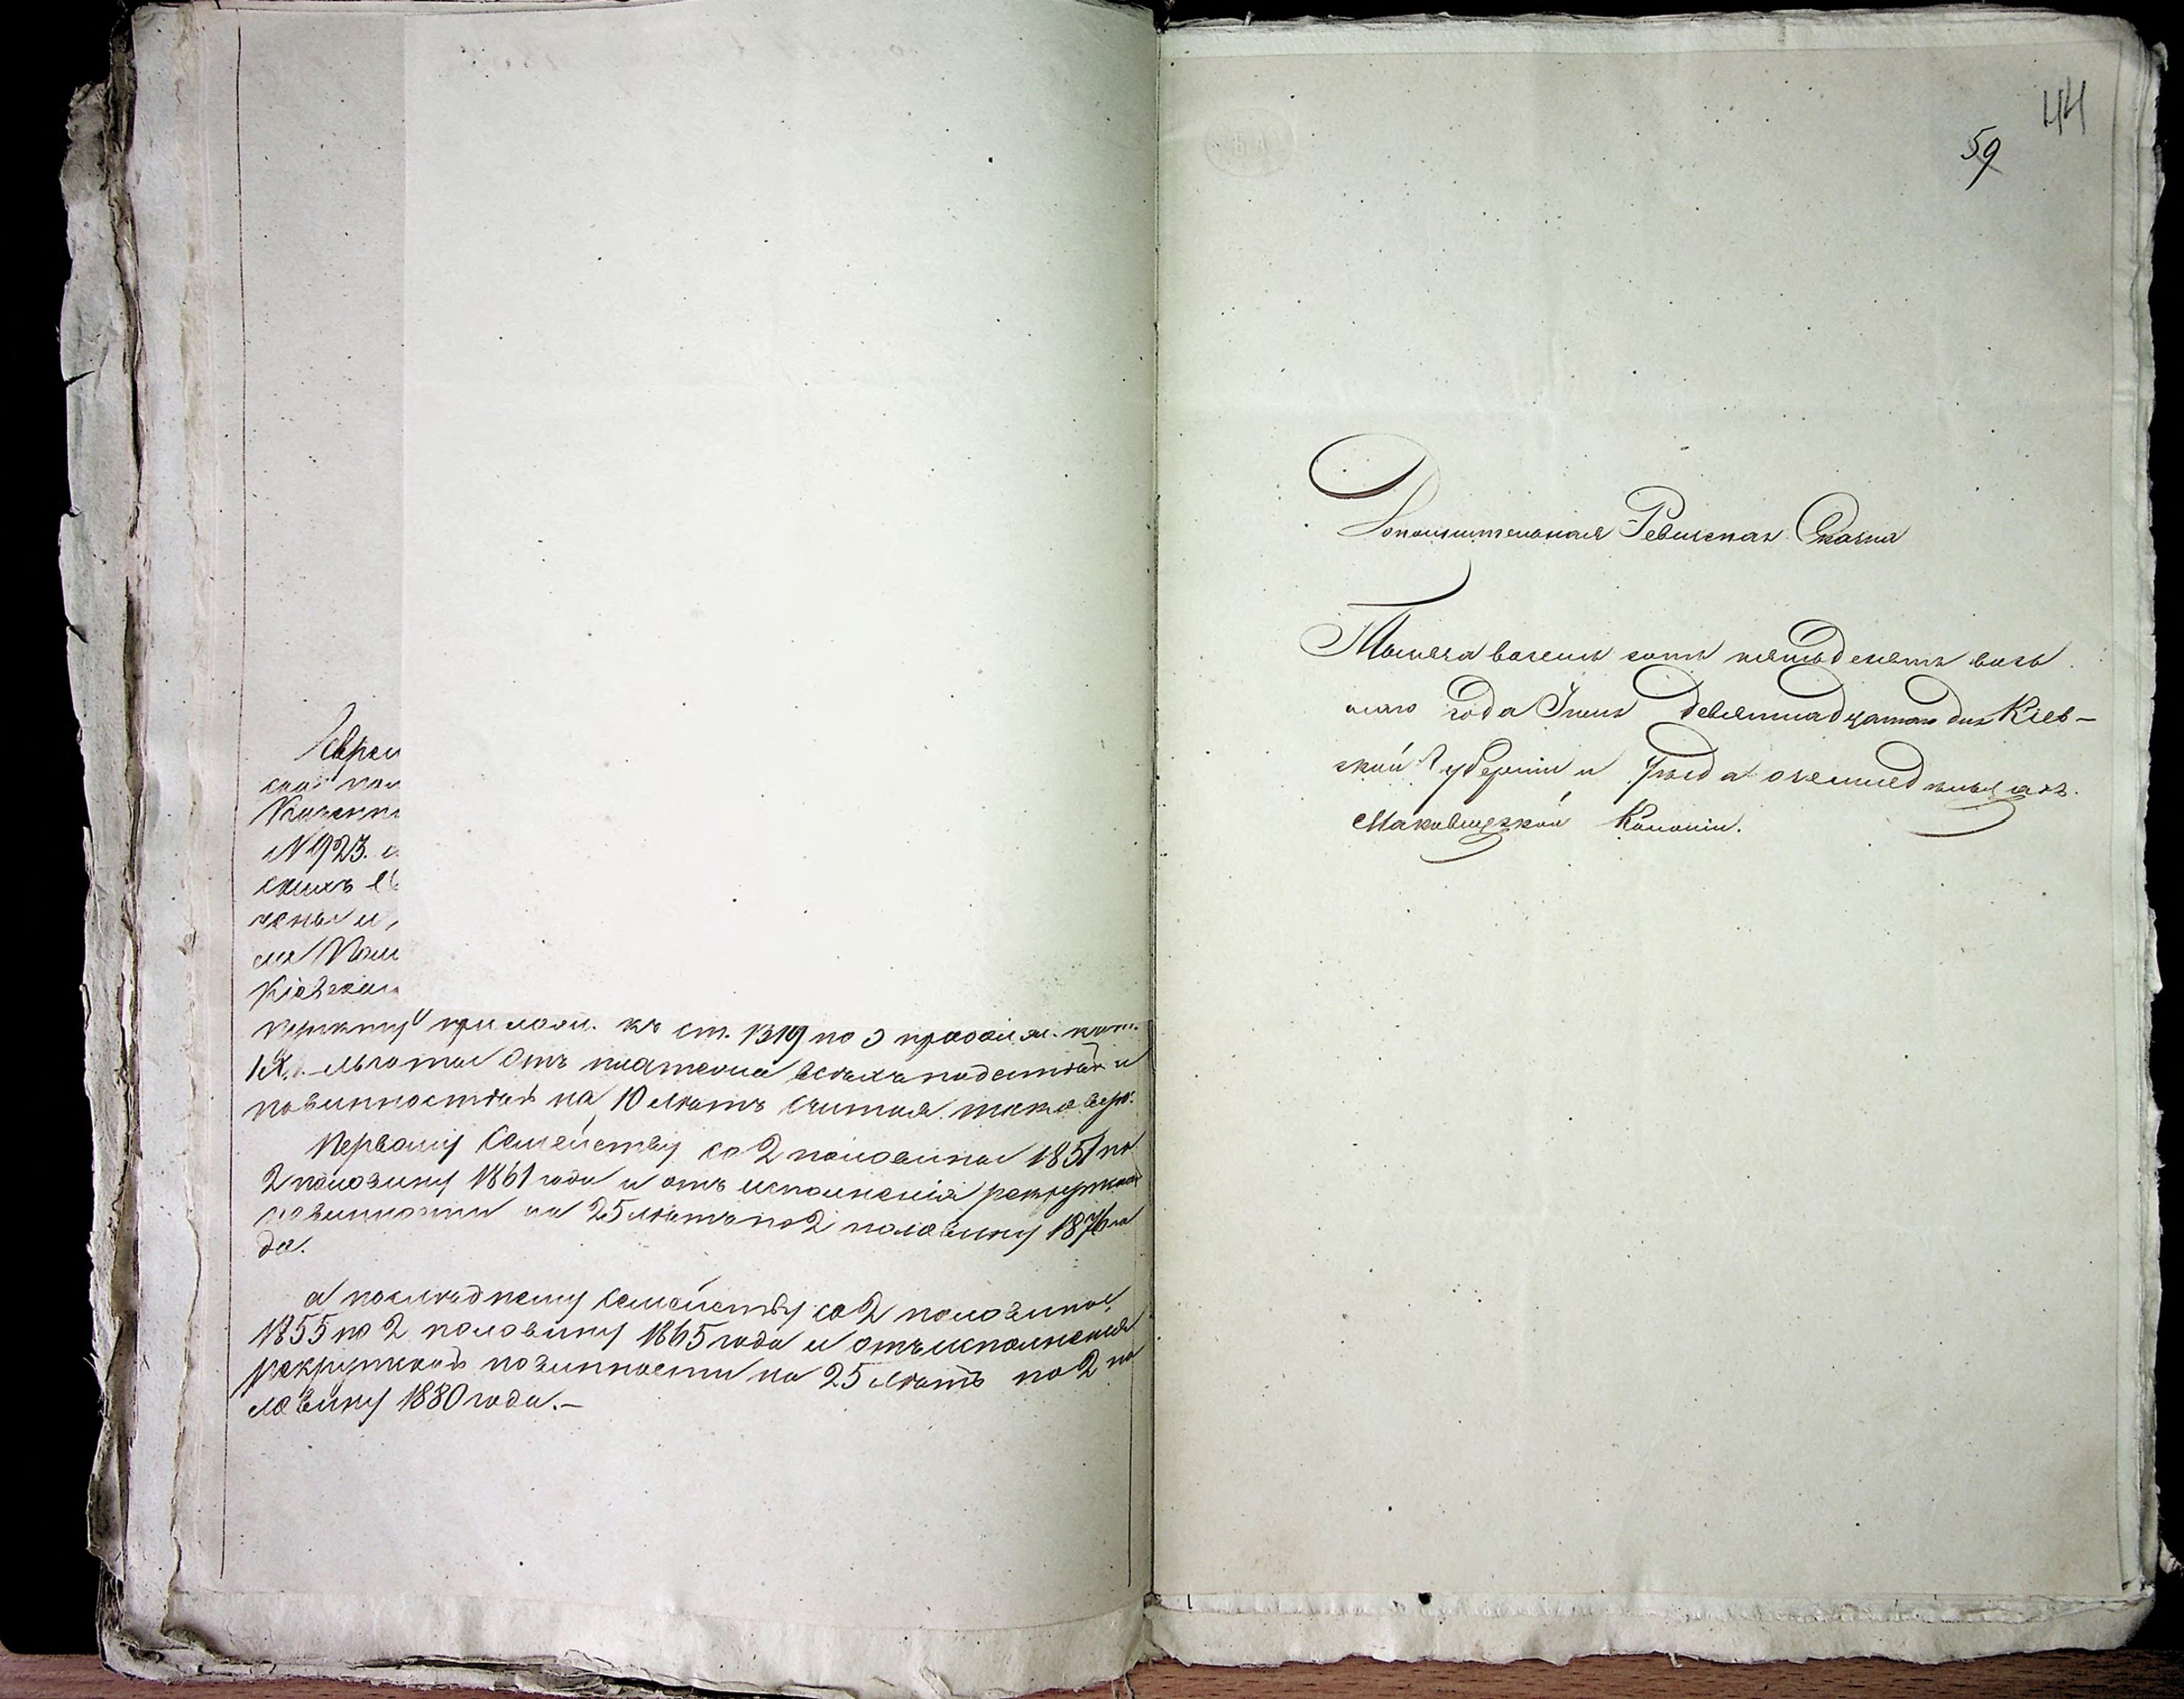 Евреи
ской пал
Казенн
№ 923. с
скихъ ев
чены и,
ма Пали
Кіевским
пункту прилож. къ ст. 1319 по 3 продолж. тот.
IX. льготы отъ платежа всѣхъ податей и
повинностей на 10 лѣтъ считая таковую:
Первому Семейству со 2 половины 1851 по
2 половину 1861 года и отъ исполненія рекрутской
повинности на 25 лѣтъ по 2 половину 1876 го
да.
а послѣднему Семейству со 2 половины
1855 по 2 половину 1865 года и отъ исполненія
рекрутской повинности на 25 лѣтъ по 2 по
ловину 1880 года.—
44
59
Дополнительная Ревиская Сказка
Тысяча восемь сотъ пятьдесятъ вось
маго года Іюня девятнадцатаго дня Кіев—
ской Губерніи и Уѣзда о земледѣльцахъ
Маковищской Колоніи.